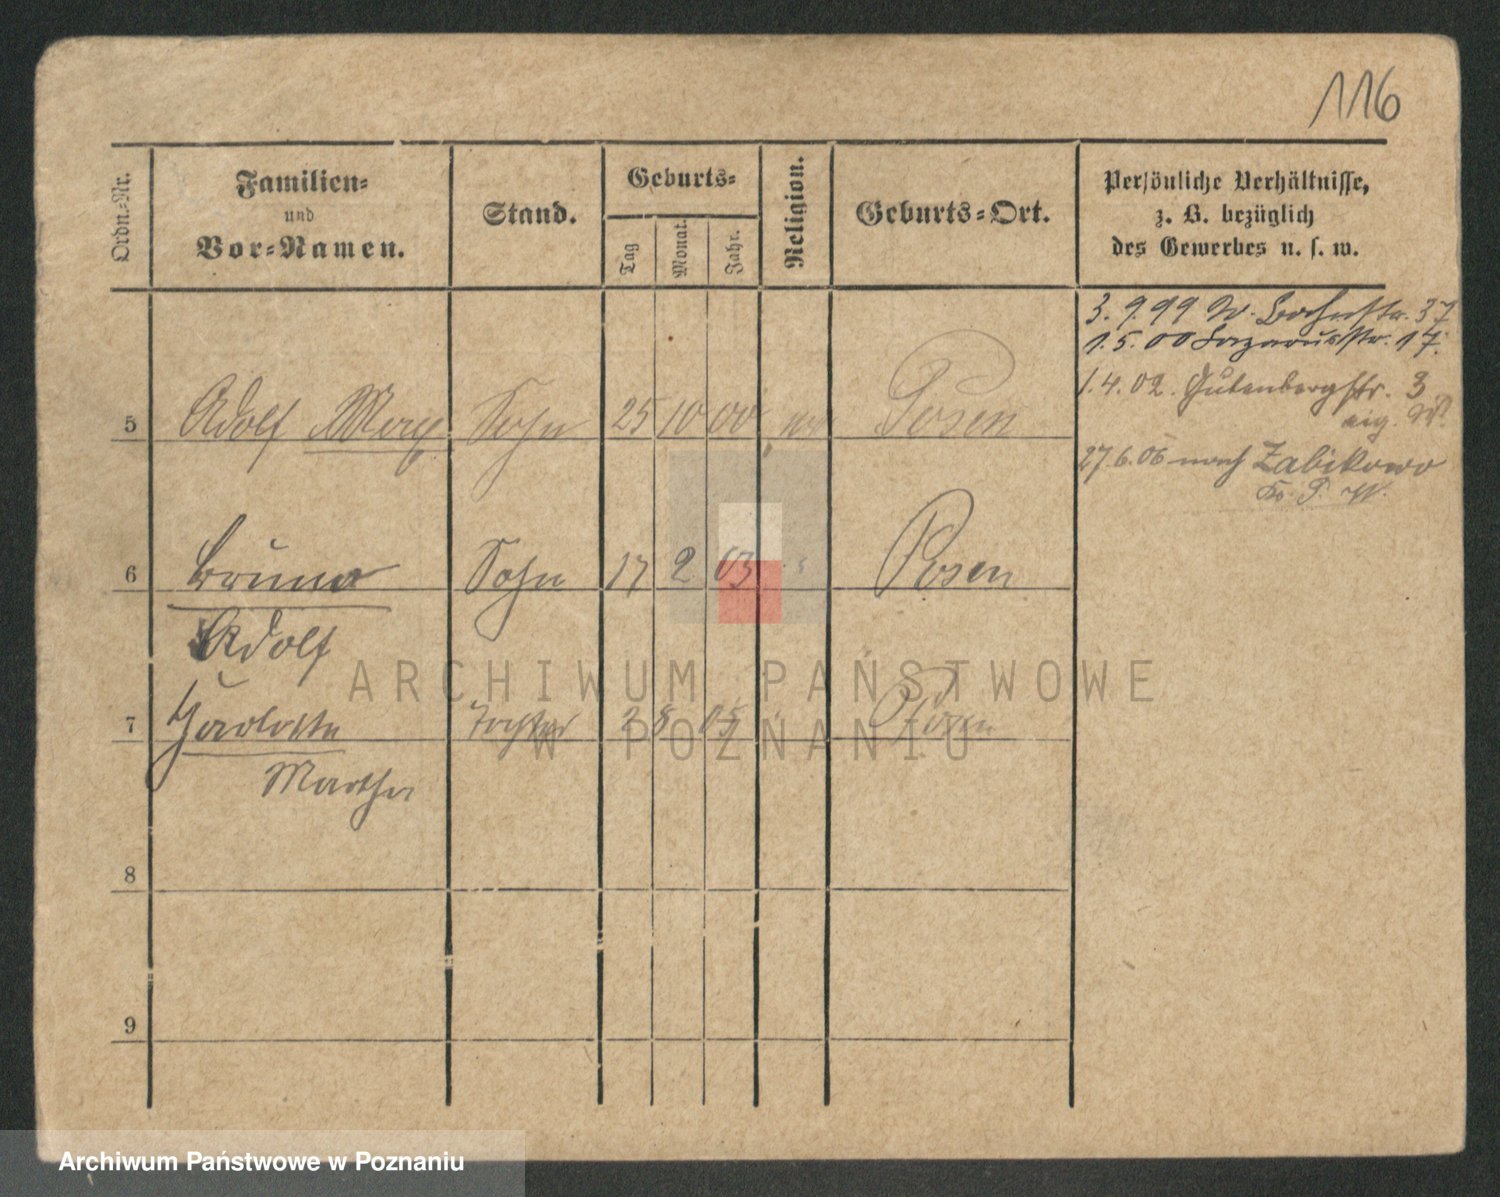 116
Ordn.-Nr.
Familien-
und
Vor-Namen.
Stand.
Geburts-
Tag
Monat.
Jahr.
Religion.
Geburts-Ort.
Persönliche Verhältnisse,
z. B. bezüglich
des Gewerbes u. s. w.
3. 9. 99 W. Bahnstr. 37
1. 5. 00 Lazarusstr. 17.
1. 4. 02. Gutenbergstr. 3
eig. W.
27. 6. 06 nach Zabikowo
Kr. P. W.
5 Adolf Max Sohn 25 10 00 Posen
6 Bruno Sohn 17 2 03 Posen
Adolf
7 Tochter 2 8 05 Posen
Martha
8
9
ARCHIWUM PAŃSTWOWE
W POZNANIU
Archiwum Państwowe w Poznaniu